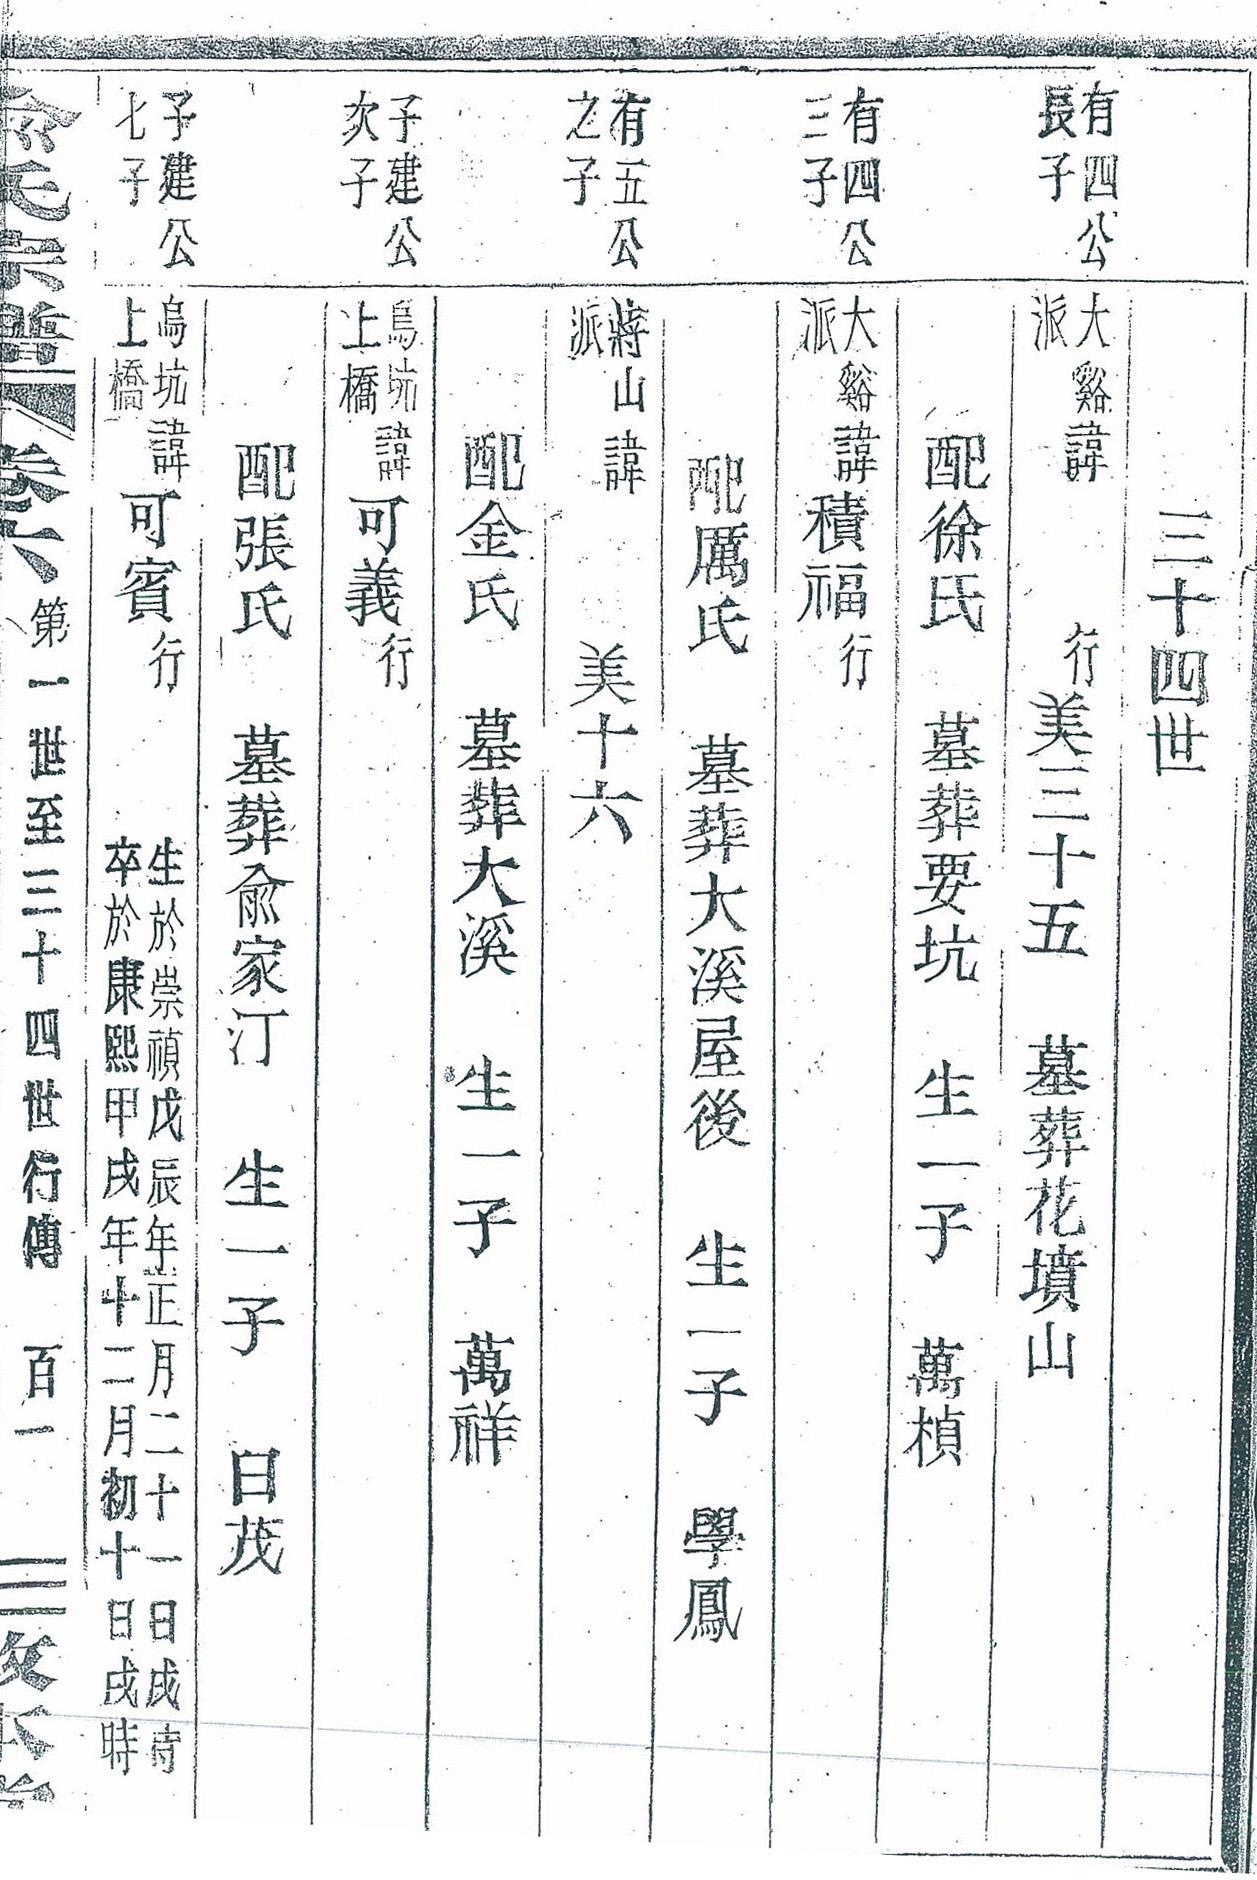 三十四世
有四公
長子
大谿諱　行美三十五　墓葬花墳山
派
配徐氏　墓葬要坑　生一子　萬楨
有四公
三子
大谿諱積福行
派
配厲氏　墓葬大溪屋後　生一子　學鳳
有五公
之子
蔣山諱　美十六
派
配金氏　墓葬大溪　生一子　萬祥
子建公
次子
烏坑諱可義行
上橋
配張氏　墓葬俞家汀　生一子　日茂
子建公
七子
烏坑諱可賓行
上橋
生於崇禎戊辰年正月二十一日戌時
卒於康熙甲戌年十二月初十日戌時
俞氏宗譜　卷六　第一世至三十四世行傳　百一　敦本堂